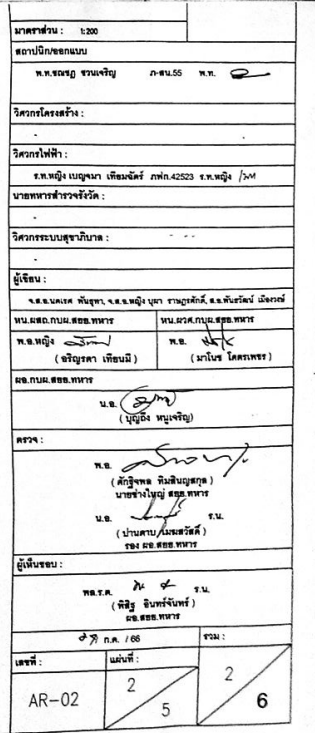 มาตราส่วน : 1:200
สถาปนิก/ออกแบบ
พ.ท.ชณชฎ ชวนเจริญ ภ-สน.55 พ.ท.
วิศวกรโครงสร้าง :
-
วิศวกรไฟฟ้า :
ร.ท.หญิง เบญจมา เทียมฉัตร์ ภฟก.42523 ร.ท.หญิง
นายทหารสำรวจรังวัด :
-
วิศวกรระบบสุขาภิบาล :
-
ผู้เขียน :
จ.ส.อ.นคเรศ พันธุทา, จ.ส.อ.หญิง บุผา ราษฎรศักดิ์, ส.อ.พันธวัฒน์ เมืองวงษ์
หน.ผสถ.กบผ.สยย.ทหาร หน.ผวศ.กบผ.สยย.ทหาร
พ.อ.หญิง พ.อ.
( อริญรดา เทียนมี ) ( มาโนช โคตรเพชร )
ผอ.กบผ.สยย.ทหาร
น.อ.
( บุญถึง หนูเจริญ)
ตรวจ :
พ.อ.
( ศักฐิจพล ทิมสินญสกุล )
นายช่างใหญ่ สยย.ทหาร
น.อ. ร.น.
( ปานดาบ เมฆสวัสดิ์ )
รอง ผอ.สยย.ทหาร
ผู้เห็นชอบ :
พล.ร.ต. ร.น.
( พิสิฐ อินทร์จันทร์ )
ผอ.สยย.ทหาร
ก.ค. /66 รวม :
เลขที่ : แผ่นที่ :
AR-02 2 5 2 6